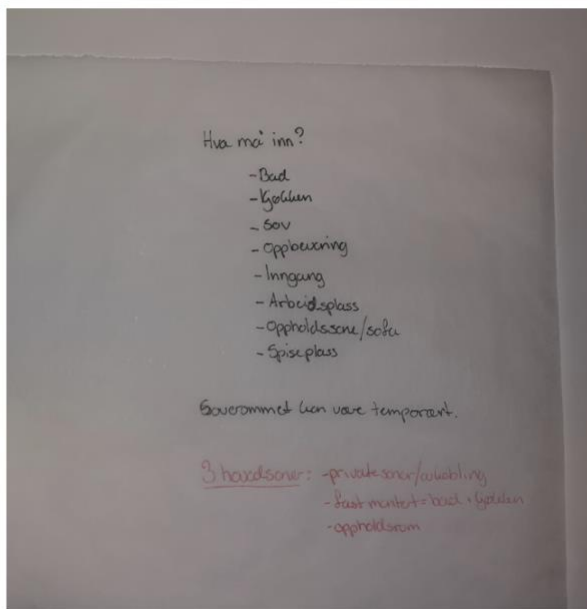 Hva må inn?
- Bad
- Kjøkken
- Sov
- Oppbevaring
- Inngang
- Arbeidsplass
- Oppholdssone/sofa
- Spiseplass
Soverommet kan være temporært.
3 hovedsoner: - private soner/avkobling
- fast montert = bad + kjøkken
- oppholdsrom